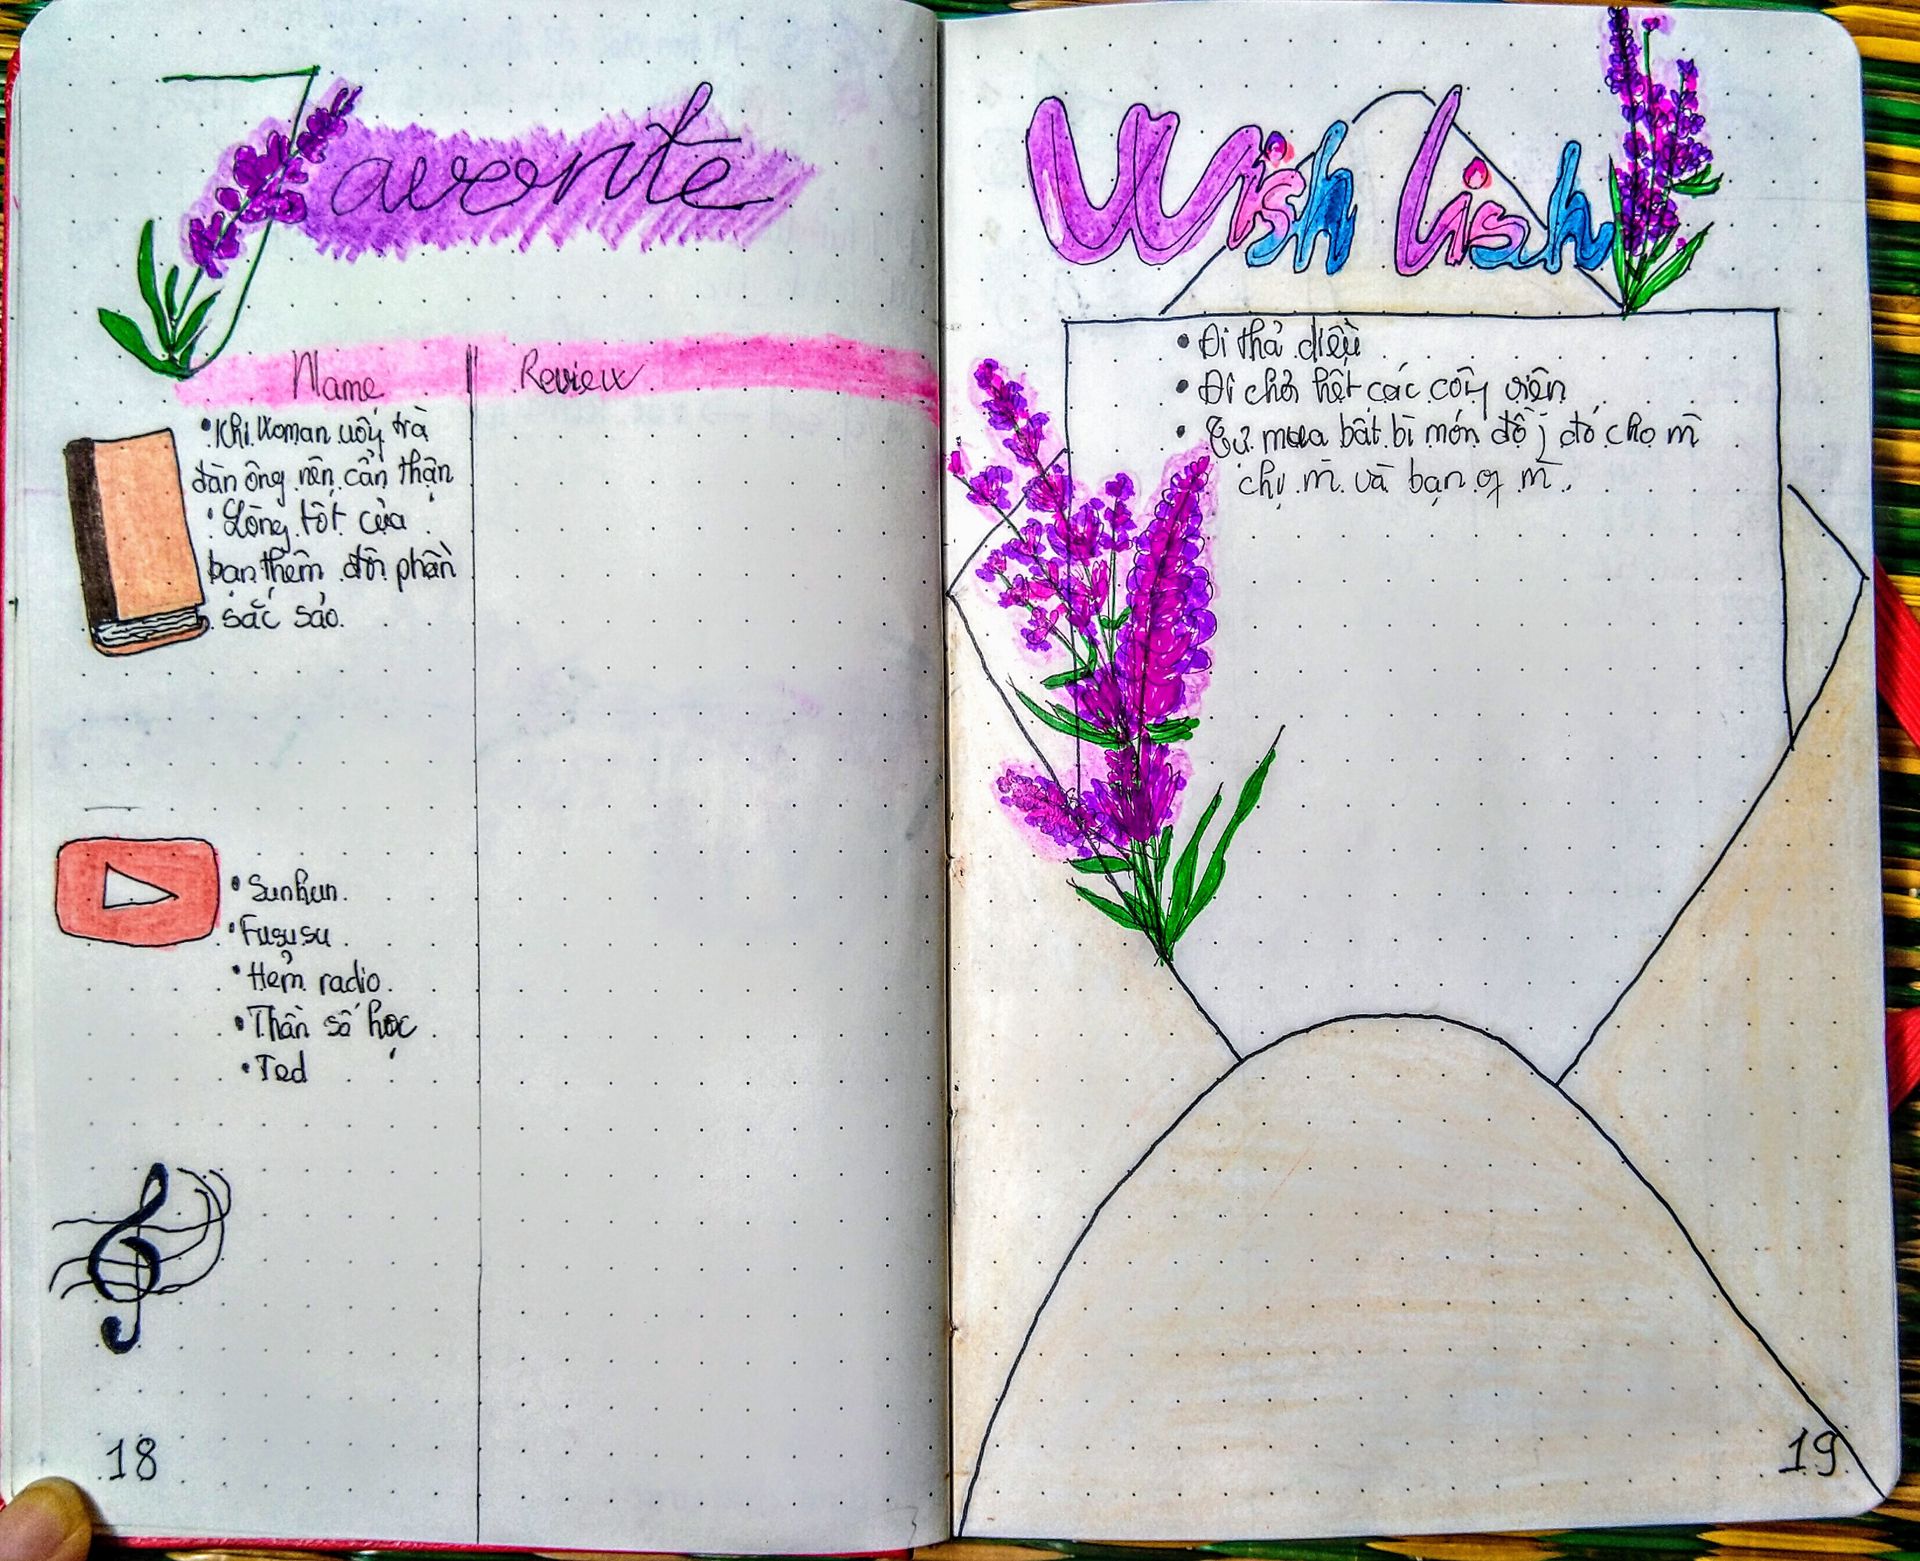 Favorite
Name Review
• Khi Woman uốg trà
đàn ông nên cẩn thận
• Lòng tốt của
bạn thêm đôi phần
sắc sảo.
• Sunhun.
• Fususu.
• Hẻm radio.
• Thần số học
• Ted
18
Wish list
• Đi thả diều
• Đi chơi hết các côg viên
• Tự mua bất bì món đồ j đó cho m̀
chị m̀ và bạn of m̀.
19